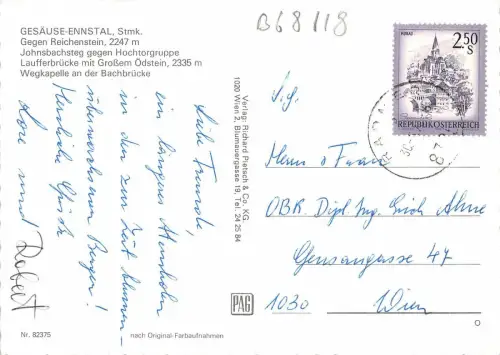 GESÄUSE-ENNSTAL, Stmk.
Gegen Reichenstein, 2247 m
Johnsbachsteg gegen Hochtorgruppe
Laufferbrücke mit Großem Ödstein, 2335 m
Wegkapelle an der Bachbrücke
B68/18
MURAU
2.50
S
REPUBLIK ÖSTERREICH
Liebe Freunde,
ein längeres Atemholen
in den zur Zeit blumen-
übersäten Bergen!
Herzliche Grüße
Lore und Robert
Verlag: Richard Pietsch & Co. KG.
1020 Wien 2, Blumauergasse 19, Tel. 24 25 84
PAG
S.g.
Herrn u Frau
OBR. Dipl. Ing. Erich Ahne
Gensangasse 47
1030 Wien
Nr. 82375
nach Original-Farbaufnahmen